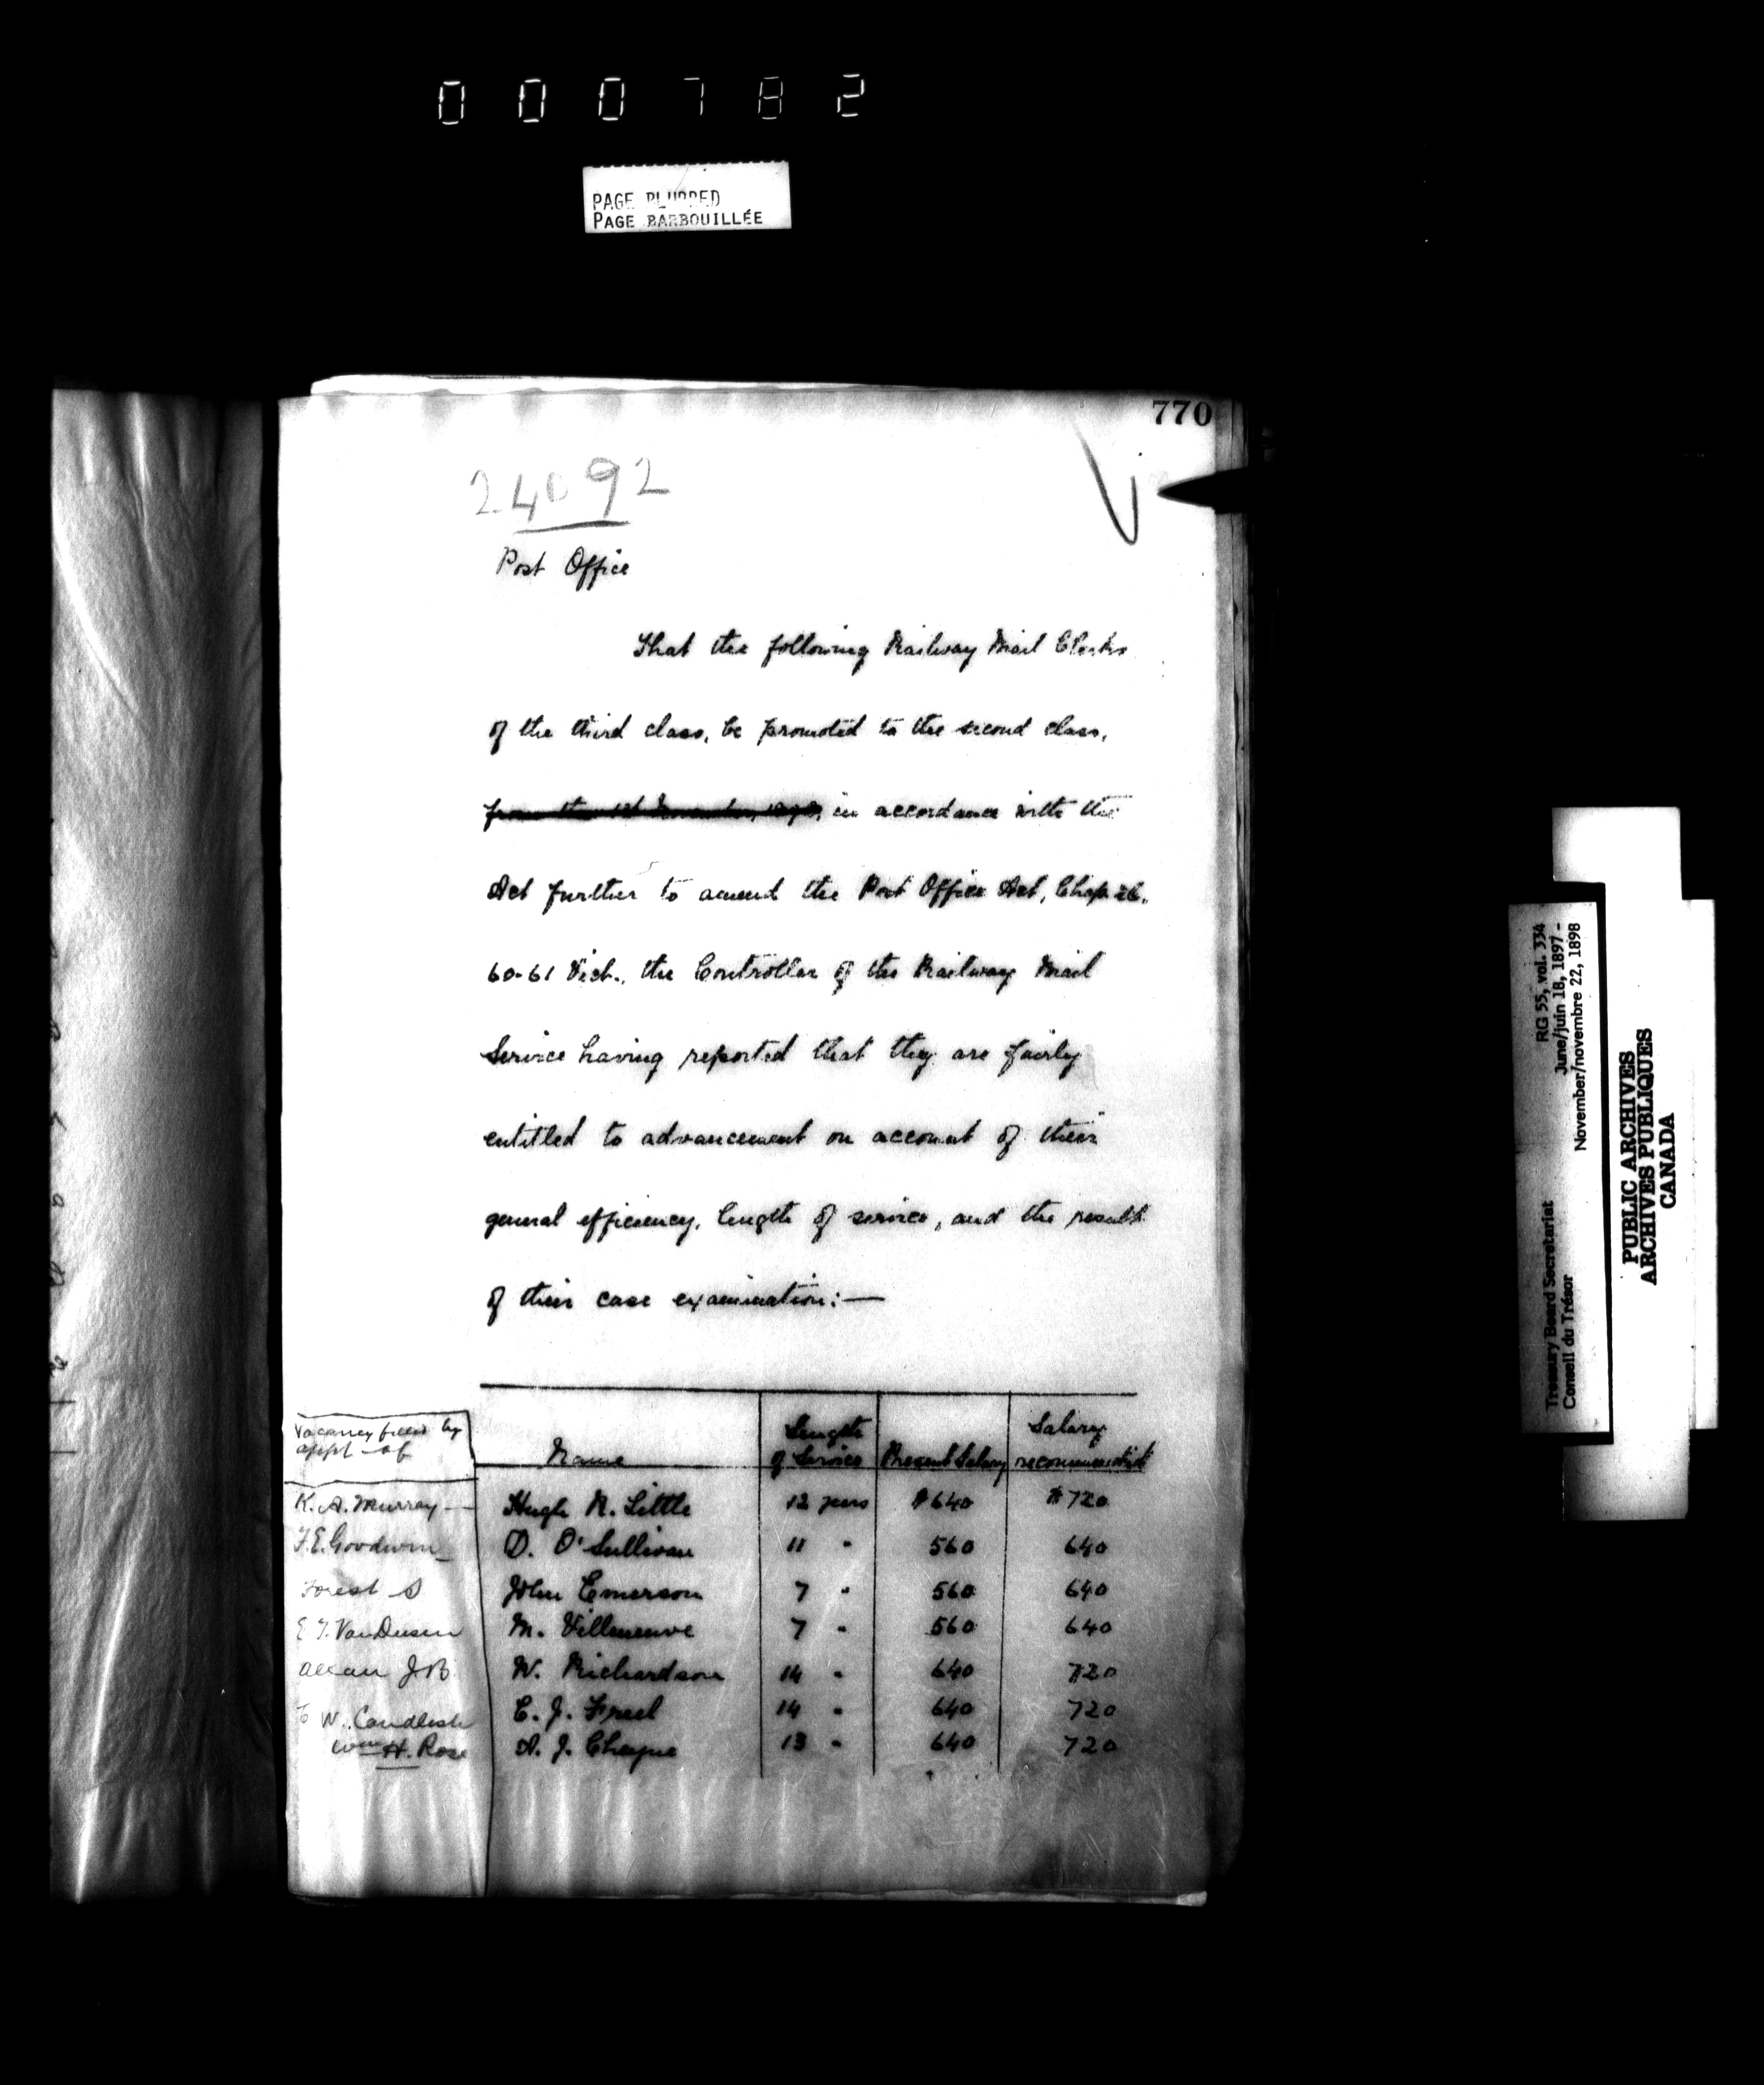 000782
PAGE BLURRED
PAGE BARBOUILLÉE
770
24092
Post Office
That the following Railway Mail Clerks
of the third class, be promoted to the second class,
from the 1st November, 1898, in accordance with the
Act further to amend the Post Office Act, Chap. 26,
60-61 Vict., the Controller of the Railway Mail
Service having reported that they are fairly
entitled to advancement on account of their
general efficiency, length of service, and the result
of their case examination:—
Vacancy filled by appt of | Name | Length of Service | Present Salary | Salary recommended
K. A. Murray — Hugh R. Little 12 years $640 $720
F. E. Goodwin — D. O'Sullivan 11 " 560 640
Forest S John Emerson 7 " 560 640
E T. VanDusen M. Villeneuve 7 " 560 640
Allan J B. W. Richardson 14 " 640 720
W. Candlish C. J. Freel 14 " 640 720
Wm H. Rose A. J. Cheyne 13 " 640 720
Treasury Board Secretariat RG 55, vol. 334
Conseil du Trésor June/juin 18, 1897 -
November/novembre 22, 1898
PUBLIC ARCHIVES
ARCHIVES PUBLIQUES
CANADA